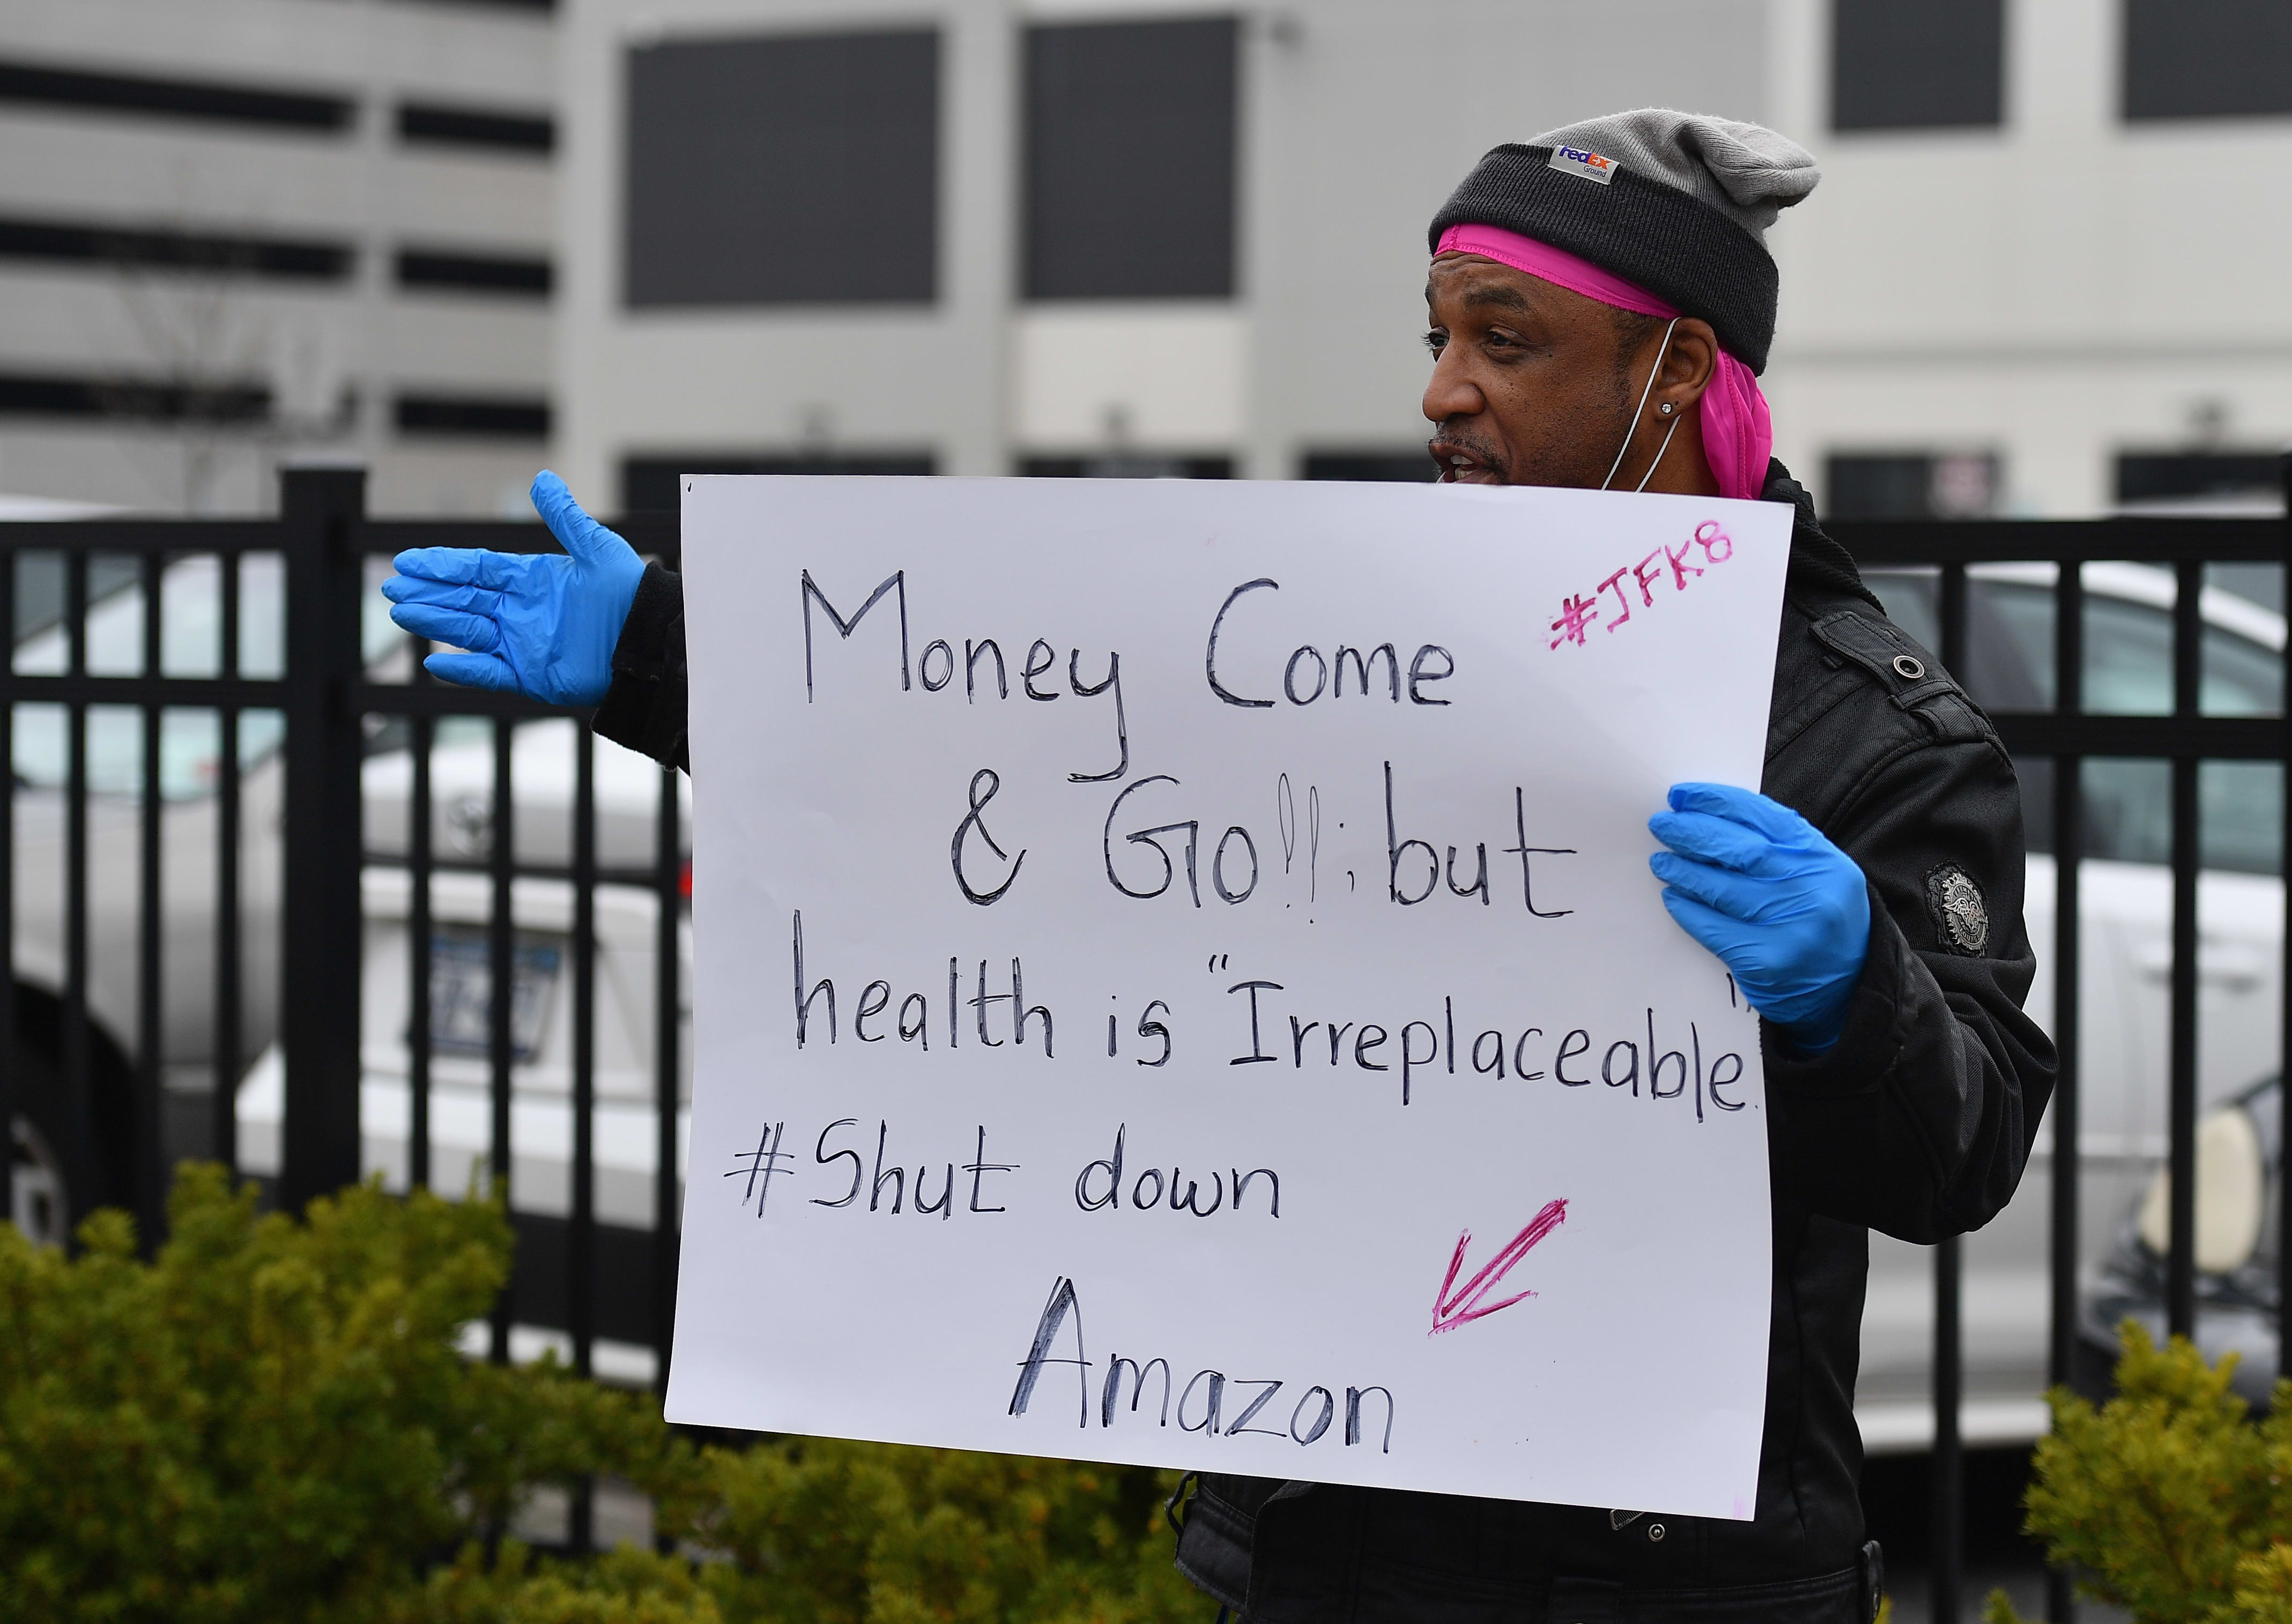 FedEx
Ground
#JFK8
Money Come
& Go!!; but
health is "Irreplaceable".
#Shut down
Amazon